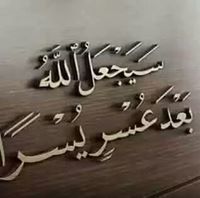 سَيَجْعَلُ اللَّهُ
بَعْدَ عُسْرٍ يُسْرًا